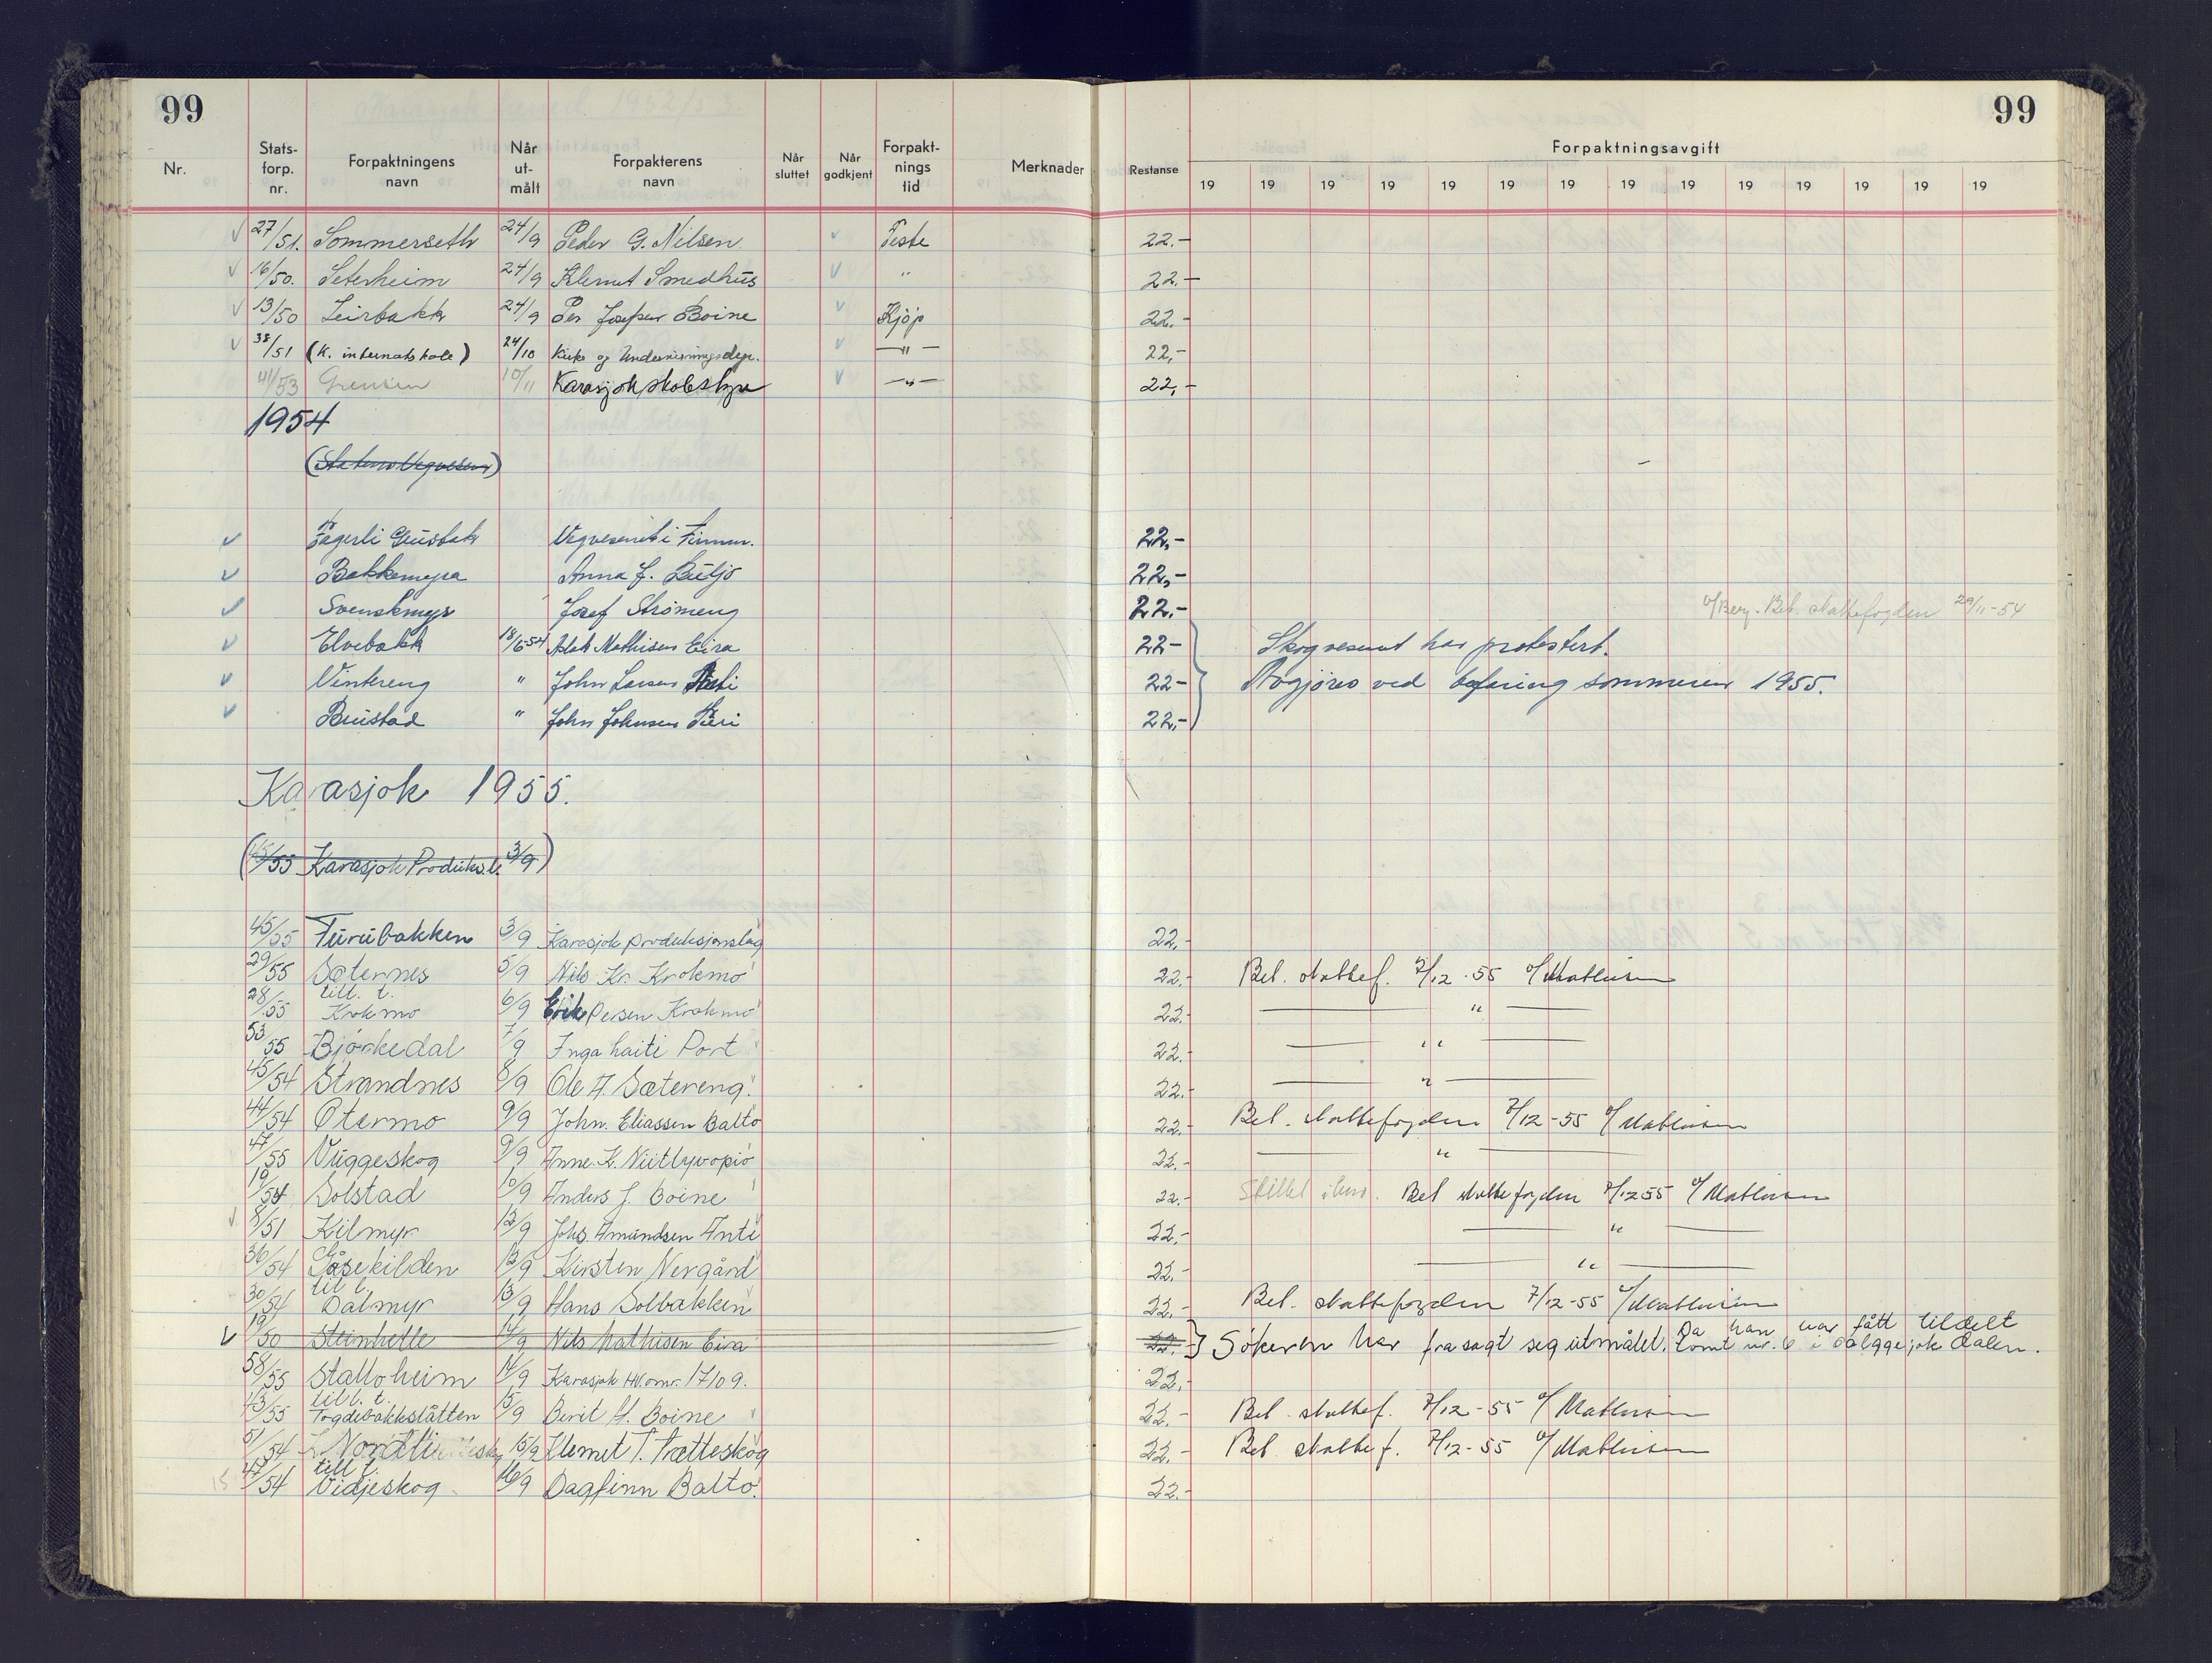 99 99
Nr. Stats-forp. nr. Forpaktningens navn Når ut-målt Forpakterens navn Når sluttet Når godkjent Forpakt-nings tid Merknader Restanse Forpaktningsavgift
19 19 19 19 19 19 19 19 19 19 19 19 19 19
27/51. Sommerseth 24/9 Peder G. Nilsen Feste 22.-
16/50. Seterheim 24/9 Klemet Smedhus " 22.-
13/50 Leirbakk 24/9 Per Josefsen Boine Kjöp 22.-
38/51 (K. internatskole) 24/10 Kirke og Undervisningsdep. -"- 22,-
41/53 Grensen 10/11 Karasjok skolestyre -"- 22,-
1954
(Statens Vegvesen)
Fagerli Grustak Vegvesenet i Finnm. 22,-
Bakkemyra Anna J. Buljo 22,-
Svenskmyr Josef Strömeng 22.- Bet. skattefogden 29/11-54
Elvebakk 18/6-54 Aslak Mathisen Eira 22- Skogvesenet har protestert.
Vintereng " John Larsen 22- Avgjöres ved befaring sommeren 1955.
Brustad " John Johnsen 22,-
Karasjok 1955.
(45/55 Karasjok Produks.l. 3/9)
45/55 Furubakken 3/9 Karasjok produksjonslag 22.-
29/55 Sæternes 5/9 Nils Kr. Krokmo 22.- Bet. skattef. 7/12-55 o/Mathisen
28/55 till. t. Krokmo 6/9 Erik Persen Krokmo 22.- — " —
53/55 Björkedal 7/9 Inga Laiti Port 22.- — " —
45/54 Strandnes 8/9 Ole A. Sætereng. 22.- — " —
44/54 Otermo 9/9 John. Eliassen Balto 22.- Bet. skattefogden 7/12-55 o/Mathisen
47/55 Vuggeskog 9/9 Anne. K. Niittyvopio 22.- — " —
19/54 Solstad 10/9 Anders J. Boine 22.- Bet skattefogden 7/12 55 o/Mathisen
8/51 Kilmyr 12/9 Johs. Amundsen Anti 22,- — " —
36/54 Gåsekilden 12/9 Kirsten Nergård 22.- — " —
30/54 til l. Dalmyr 13/9 Hans Solbakken 22.- Bet. skattefogden 7/12-55 o/Mathisen
19/50 Steinhelle 14/9 Nils Mathisen Eira 22.- Sökeren har frasagt seg utmålet. Da han har fått tildelt tomt nr. 6 i dalen.
58/55 Stalloheim 14/9 Karasjok HV.omr. 17109. 22,-
43/55 till. t. Togdebakkslåtten 15/9 Berit H. Boine 22.- Bet. skattef. 7/12-55 o/Mathisen
51/54 Nordli 15/9 Klemet T. Trætteskog 22.- Bet. skattef. 7/12-55 o/Mathisen
47/54 till t. Vidjeskog 16/9 Dagfinn Balto. 22.-